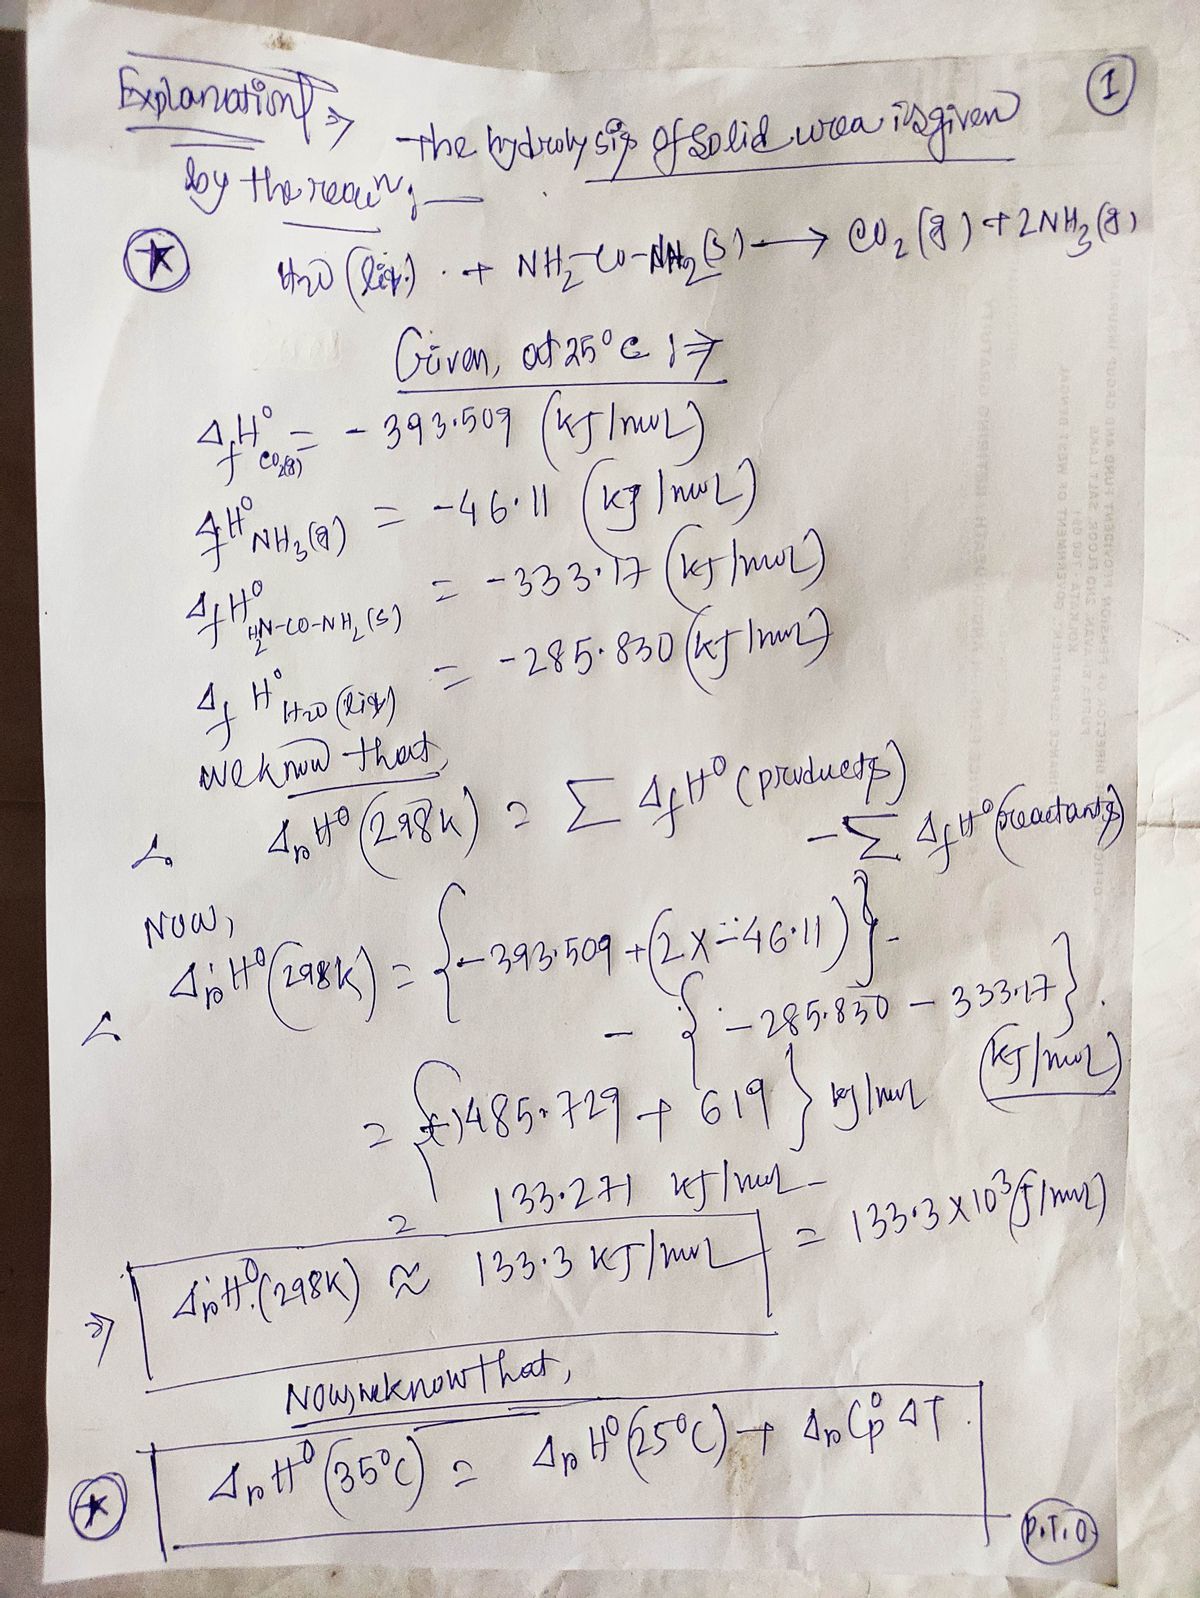 1
Explanation ⇒ The hydrolysis of solid urea is given
by the reacn, —
H2O (liq.) + NH2-CO-NH2(s) ⟶ CO2(g) + 2NH3(g)
Given, at 25°C ;⇒
ΔfH°CO2(g) = -393.509 (kJ/mol)
ΔfH°NH3(g) = -46.11 (kJ/mol)
ΔfH°H2N-CO-NH2(s) = -333.17 (kJ/mol)
ΔfH°H2O(liq) = -285.830 (kJ/mol)
We know that,
ΔrH°(298K) = ∑ ΔfH°(products)
- ∑ ΔfH°(reactants)
Now,
ΔrH°(298K) = {-393.509 + (2x-46.11)} -
- {-285.830 - 333.17}
(kJ/mol)
= {(-)485.729 + 619} kJ/mol
= 133.271 kJ/mol
⇒ ΔrH°(298K) ≈ 133.3 kJ/mol = 133.3 x 10³ (J/mol)
Now, we know that,
ΔrH°(35°C) = ΔrH°(25°C) + ΔrCp° ΔT.
P.T.O